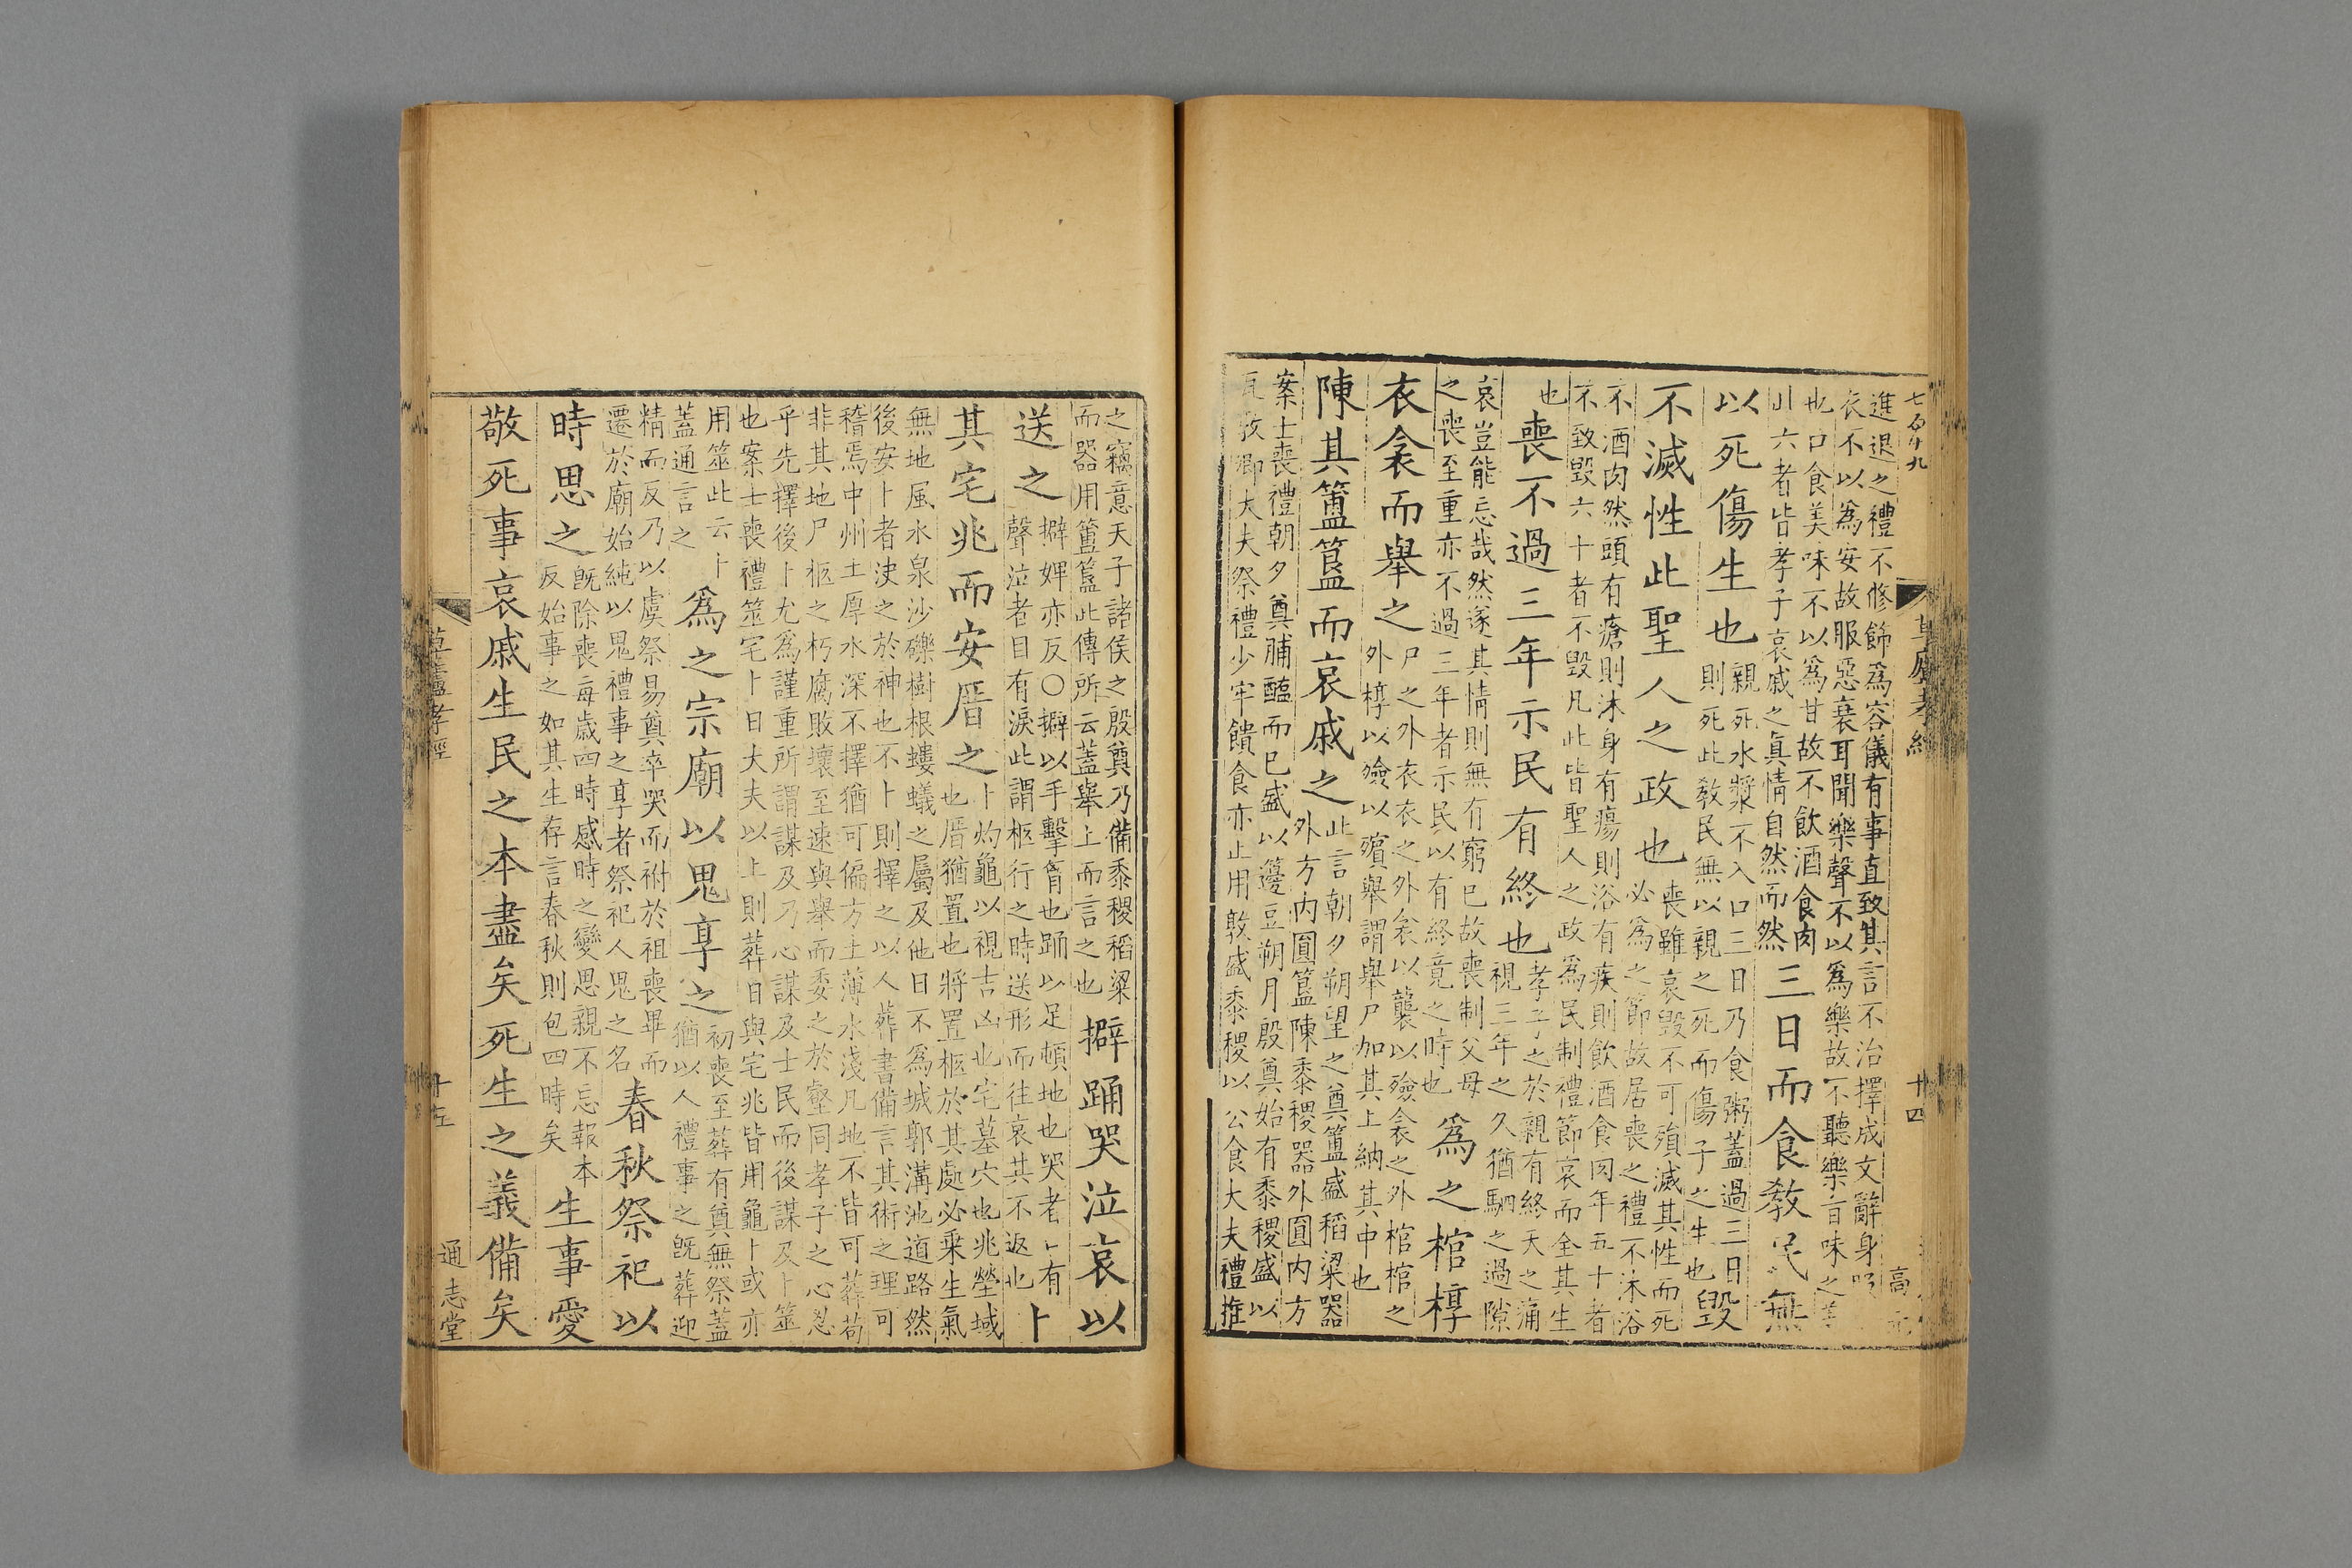 草廬孝經
十四
進退之禮不修飾爲容儀有事直致其言不治擇成文辭身
衣不以爲安故服惡衰耳聞樂聲不以爲樂故不聽樂音味之美
也口食美味不以爲甘故不飮酒食肉
此六者皆孝子哀戚之眞情自然而然
三日而食敎民無
以死傷生也
親死水漿不入口三日乃食粥蓋過三日
則死此敎民無以親之死而傷子之生也
毁
不滅性此聖人之政也
喪雖哀毁不可殞滅其性而死
必爲之節故居喪之禮不沐浴
不酒肉然頭有瘡則沐身有瘍則浴有疾則飮酒食肉年五十者
不致毁六十者不毁凡此皆聖人之政爲民制禮節哀而全其生
也
喪不過三年示民有終也
孝子之於親有終天之痛
視三年之久猶駟之過隙
哀豈能忘哉然遂其情則無有窮已故喪制父母
之喪至重亦不過三年者示民以有終竟之時也
爲之棺椁
衣衾而舉之
尸之外衣衣之外衾以襲以殮衾之外棺棺之
外椁以殮以殯舉謂舉尸加其上納其中也
陳其簠簋而哀戚之
此言朝夕朔望之奠簠盛稻粱器
外方内圓簋陳黍稷器外圓内方
案士喪禮朝夕奠脯醢而已盛以籩豆朔月殷奠始有黍稷盛以
瓦敦卿大夫祭禮少牢饋食亦止用敦盛黍稷以公食大夫禮推
之竊意天子諸侯之殷奠乃備黍稷稻粱
而器用簠簋此傳所云蓋舉上而言之也
擗踊哭泣哀以
送之
擗婢亦反〇擗以手擊膺也踊以足頓地也哭者口有
聲泣者目有淚此謂柩行之時送形而往哀其不返也
卜
其宅兆而安厝之
卜灼龜以視吉凶也宅墓穴也兆塋域
也厝猶置也將置柩於其處必乘生氣
無地風水泉沙礫樹根螻蟻之屬及他日不爲城郭溝池道路然
後安卜者决之於神也不卜則擇之以人葬書備言其術之理可
稽焉中州土厚水深不擇猶可偏方土薄水淺凡地不皆可葬苟
非其地尸柩之朽腐敗壞至速與舉而委之於壑同孝子之心忍
乎先擇後卜尤爲謹重所謂謀及乃心謀及士民而後謀及卜筮
也案士喪禮筮宅卜日大夫以上則葬日與宅兆皆用龜卜或亦
用筮此云卜
蓋通言之
爲之宗廟以鬼享之
初喪至葬有奠無祭蓋
猶以人禮事之旣葬迎
精而反乃以虞祭易奠卒哭而祔於祖喪畢而
遷於廟始純以鬼禮事之享者祭祀人鬼之名
春秋祭祀以
時思之
旣除喪每歲四時感時之變思親不忘報本
反始事之如其生存言春秋則包四時矣
生事愛
敬死事哀戚生民之本盡矣死生之義備矣
草廬孝經
十五
通志堂